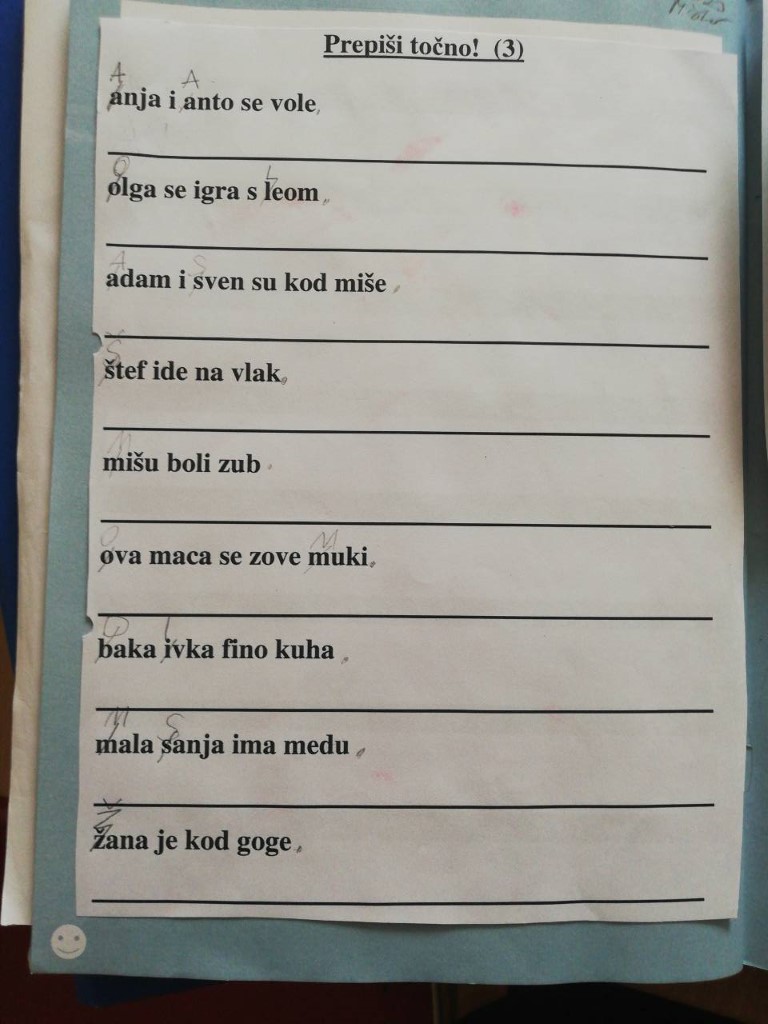 Prepiši točno! (3)
anja i anto se vole.
olga se igra s leom.
adam i sven su kod miše.
štef ide na vlak.
mišu boli zub.
ova maca se zove muki.
baka ivka fino kuha.
mala sanja ima medu.
žana je kod goge.